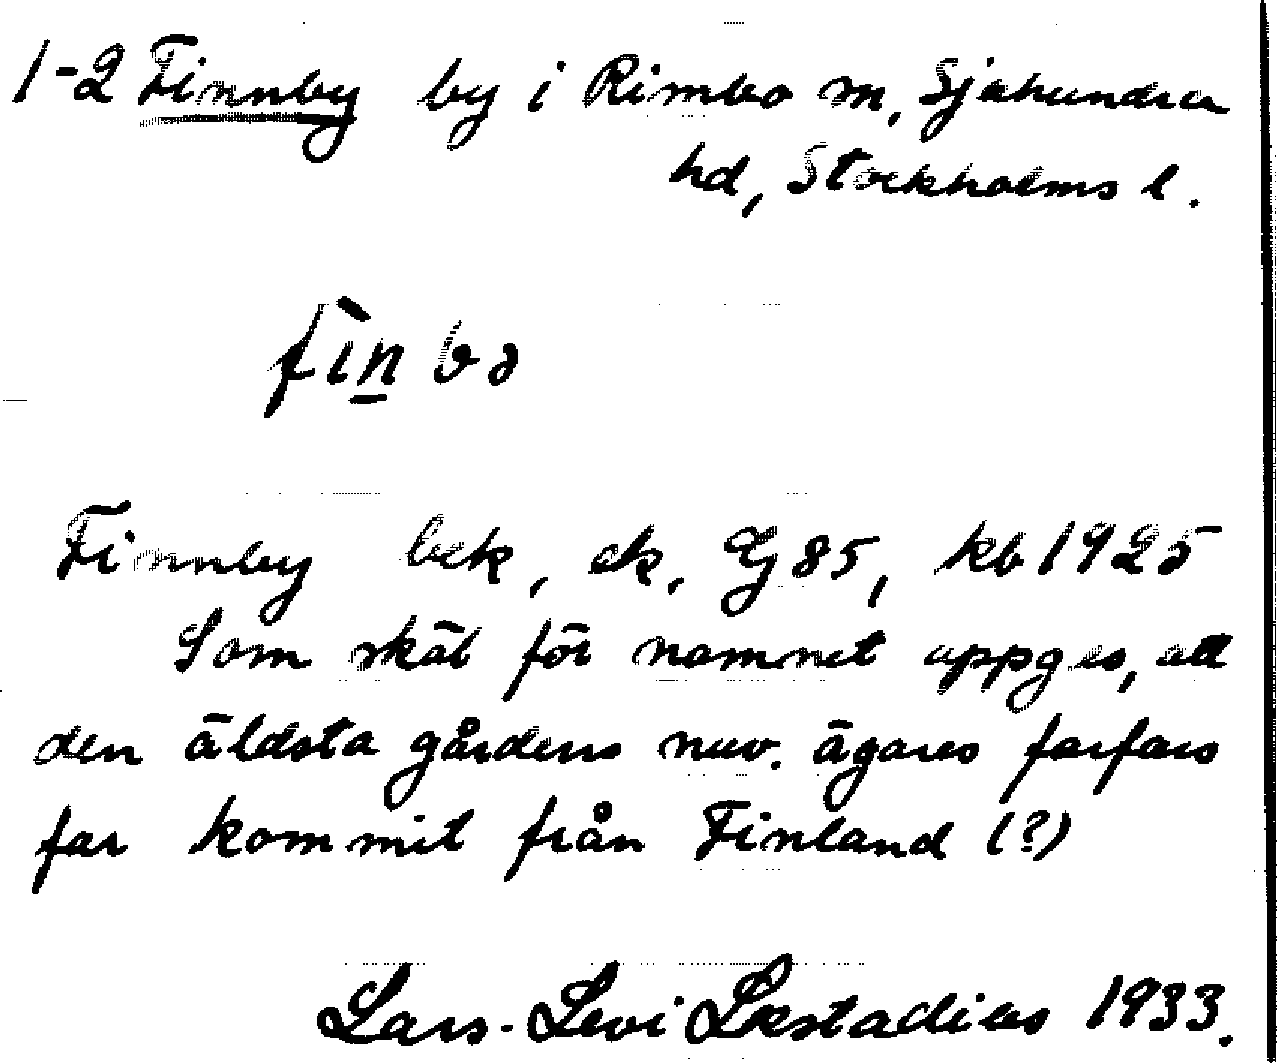 1-2 Finnby by i Rimbo sn, Sjuhundra
hd, Stockholms l.
fìn bə
Finnby bek, ek, Gj 85, kb 1925
Som skäl för namnet uppges, att
den äldsta gårdens nuv. ägares farfars
far kommit från Finland (?)
Lars-Levi Læstadius 1933.